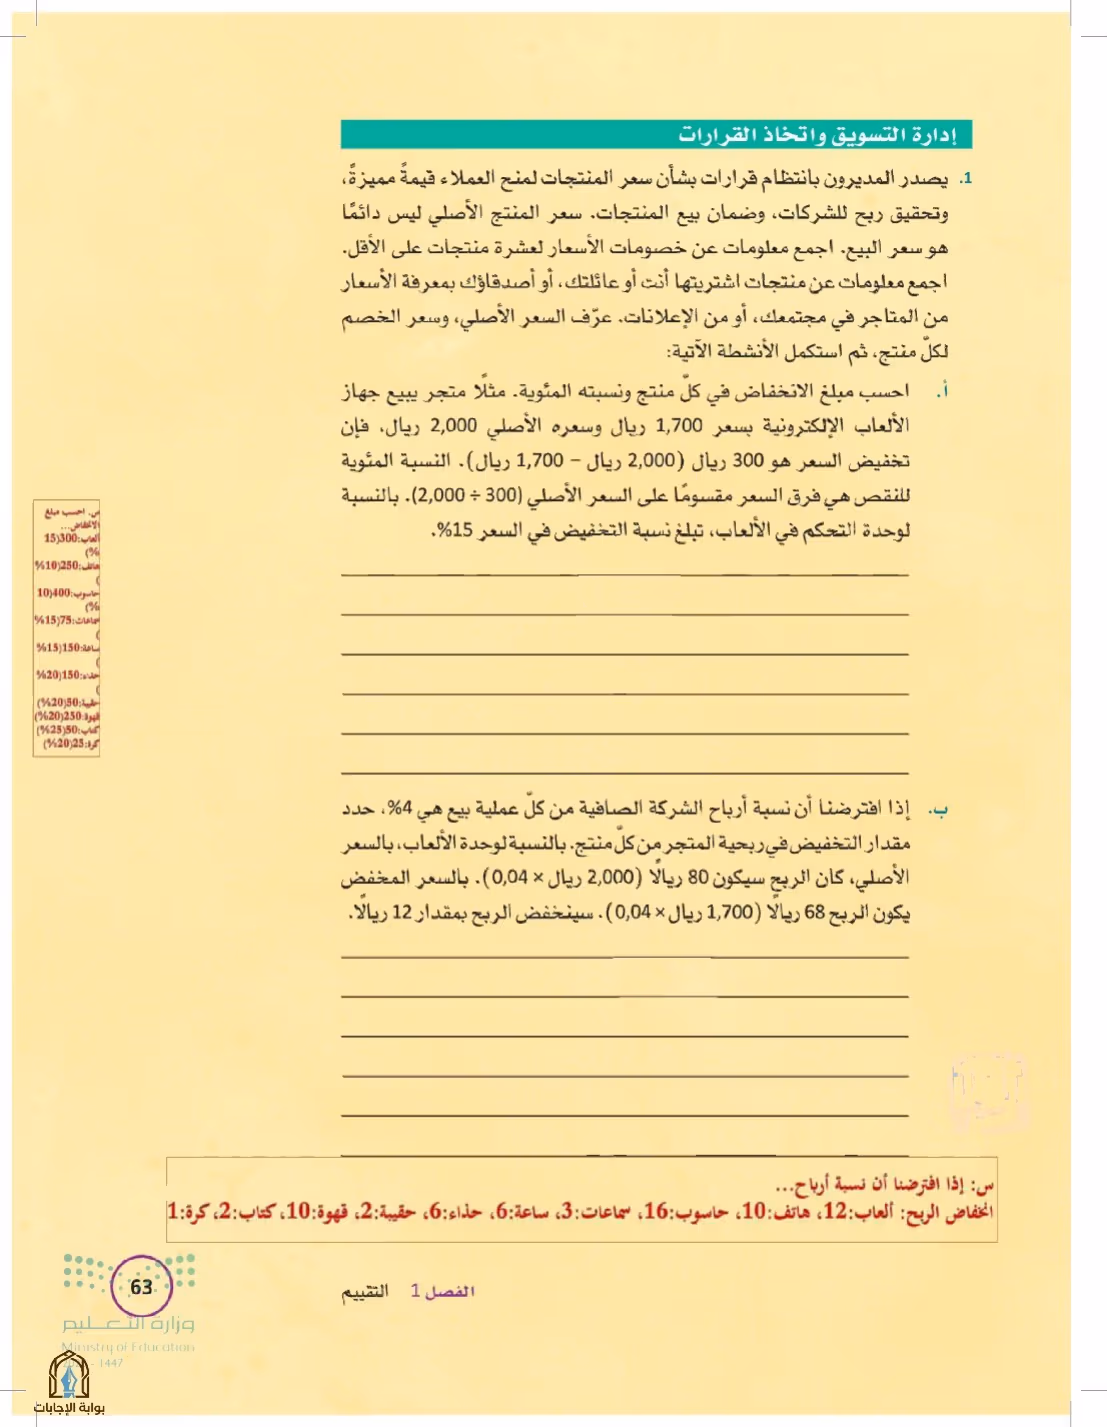 إدارة التسويق واتخاذ القرارات
1. يصدر المديرون بانتظام قرارات بشأن سعر المنتجات لمنح العملاء قيمةً مميزةً،
وتحقيق ربح للشركات، وضمان بيع المنتجات. سعر المنتج الأصلي ليس دائمًا
هو سعر البيع. اجمع معلومات عن خصومات الأسعار لعشرة منتجات على الأقل.
اجمع معلومات عن منتجات اشتريتها أنت أو عائلتك، أو أصدقاؤك بمعرفة الأسعار
من المتاجر في مجتمعك، أو من الإعلانات. عرّف السعر الأصلي، وسعر الخصم
لكلّ منتج، ثم استكمل الأنشطة الآتية:
أ. احسب مبلغ الانخفاض في كلّ منتج ونسبته المئوية. مثلًا متجر يبيع جهاز
الألعاب الإلكترونية بسعر 1,700 ريال وسعره الأصلي 2,000 ريال، فإن
تخفيض السعر هو 300 ريال (2,000 ريال – 1,700 ريال). النسبة المئوية
للنقص هي فرق السعر مقسومًا على السعر الأصلي (300 ÷ 2,000). بالنسبة
لوحدة التحكم في الألعاب، تبلغ نسبة التخفيض في السعر 15%.
س. احسب مبلغ
الانخفاض...
ألعاب:300(15
%)
هاتف:250(10%
)
حاسوب:400(10
%)
سماعات:75(15%
)
ساعة:150(15%
)
حذاء:150(20%
)
حقيبة:50(20%)
قهوة:250(20%)
كتاب:50(25%)
كرة:25(20%)
ب. إذا افترضنا أن نسبة أرباح الشركة الصافية من كلّ عملية بيع هي 4%، حدد
مقدار التخفيض في ربحية المتجر من كلّ منتج. بالنسبة لوحدة الألعاب، بالسعر
الأصلي، كان الربح سيكون 80 ريالًا (2,000 ريال × 0,04). بالسعر المخفض
يكون الربح 68 ريالًا (1,700 ريال × 0,04). سينخفض الربح بمقدار 12 ريالًا.
س: إذا افترضنا أن نسبة أرباح...
انخفاض الربح: ألعاب:12، هاتف:10، حاسوب:16، سماعات:3، ساعة:6، حذاء:6، حقيبة:2، قهوة:10، كتاب:2، كرة:1
الفصل 1 التقييم
63
وزارة التعليم
Ministry of Education
- 1447
بوابة الإجابات